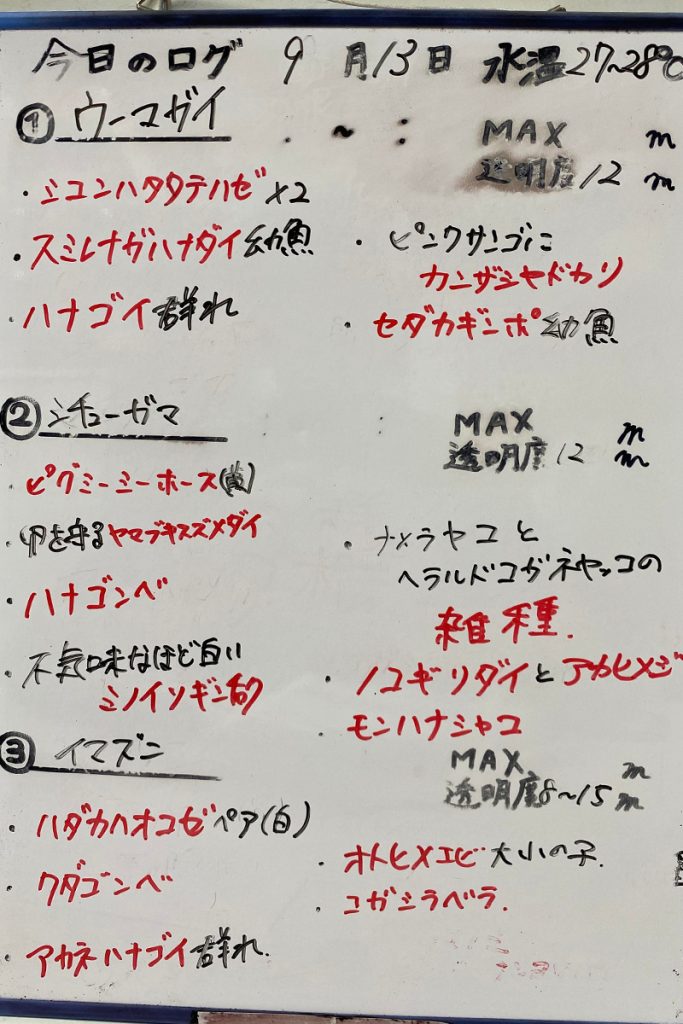 今日のログ 9月13日 水温27~28℃
① ウーマガイ . ~ : MAX m
透明度12m
・シコンハタタテハゼ×2
・スミレナガハナダイ幼魚
・ハナゴイ群れ
・ピンクサンゴに
カンザシヤドカリ
・セダカギンポ幼魚
② シチューガマ : MAX m
透明度12m
・ピグミーシーホース(黄)
・卵を守るヤマブキスズメダイ
・ハナゴンベ
・不気味なほど白い
ミノイソギンチャク
・ナメラヤコと
ヘラルドコガネヤッコの
雑種.
・ノコギリダイとアカヒメジ
モンハナシャコ
③ イマズニ MAX m
透明度8~15m
・ハダカハオコゼペア(白)
・クダゴンベ
・アカネハナゴイ群れ.
・オトヒメエビ大小の子.
・コガシラベラ.